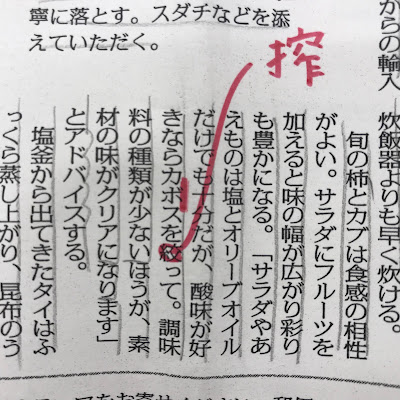 寧に落とす。スダチなどを添
えていただく。
搾
からの輸入
炊飯器よりも早く炊ける。
旬の柿とカブは食感の相性
がよい。サラダにフルーツを
加えると味の幅が広がり彩り
も豊かになる。「サラダやあ
えものは塩とオリーブオイル
だけでも十分だが、酸味が好
きならカボスを絞って。調味
料の種類が少ないほうが、素
材の味がクリアになります」
とアドバイスする。
塩釜から出てきたタイはふ
っくら蒸し上がり、昆布のう